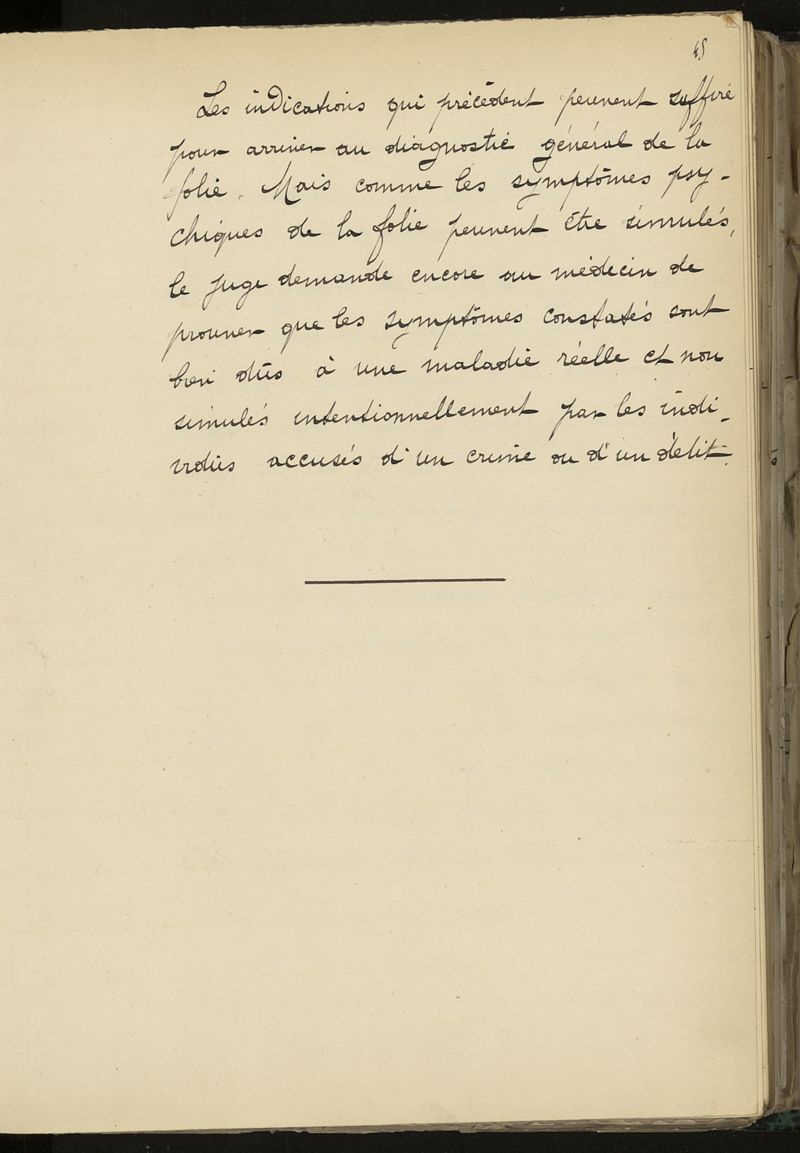 45
Les indications qui précèdent peuvent suffire
pour arriver au diagnostic général de la
folie. Mais comme les symptômes psy-
chiques de la folie peuvent être simulés,
le juge demande encore au médecin de
prouver que les symptômes constatés sont
bien dûs à une maladie réelle et non
simulés intentionnellement par les indi-
vidus accusés d'un crime ou d'un délit.